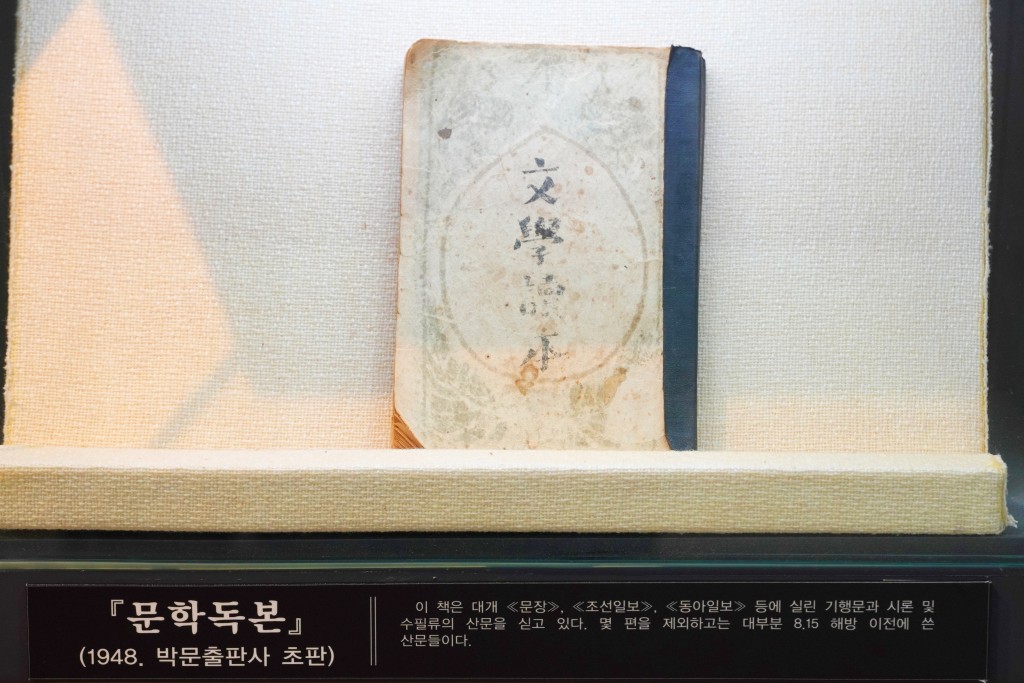 文學讀本
『문학독본』
(1948. 박문출판사 초판)
이 책은 대개 ≪문장≫, ≪조선일보≫, ≪동아일보≫ 등에 실린 기행문과 시론 및
수필류의 산문을 싣고 있다. 몇 편을 제외하고는 대부분 8.15 해방 이전에 쓴
산문들이다.